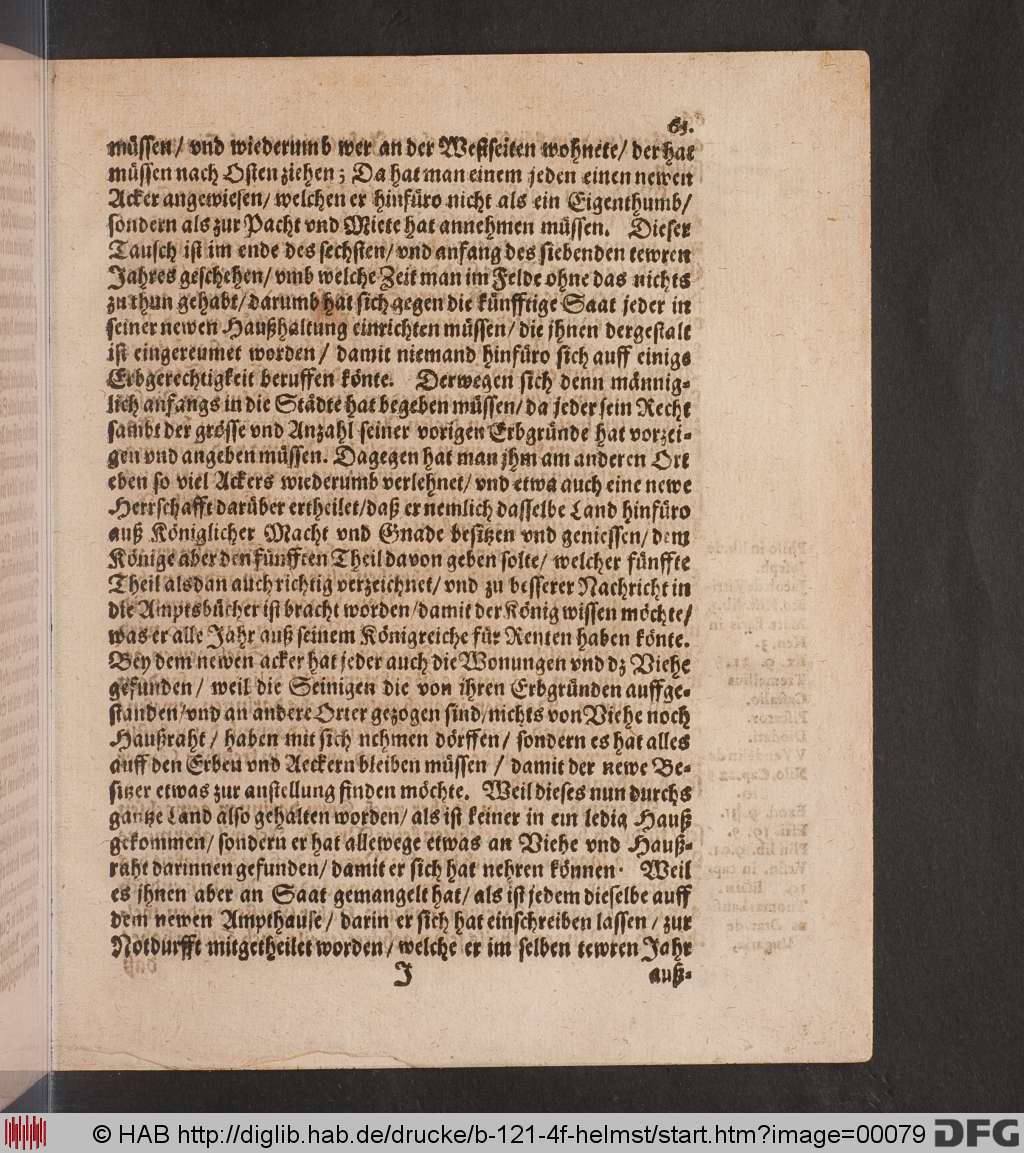 65.
müssen/ vnd wiederumb wer an der Westseiten wohnete/ der hat
müssen nach Osten ziehen; Da hat man einem jeden einen newen
Acker angewiesen/ welchen er hinfüro nicht als ein Eigenthumb/
sondern als zur Pacht vnd Miete hat annehmen müssen. Dieser
Tausch ist im ende des sechsten/ vnd anfang des siebenden tewren
Jahres geschehen/ vmb welche Zeit man im Felde ohne das nichts
zu thun gehabt/ darumb hat sich gegen die künfftige Saat jeder in
seiner newen Haußhaltung einrichten müssen/ die jhnen dergestalt
ist eingereumet worden/ damit niemand hinfüro sich auff einige
Erbgerechtigkeit beruffen könte. Derwegen sich denn männig-
lich anfangs in die Städte hat begeben müssen/ da jeder sein Recht
sambt der grösse vnd Anzahl seiner vorigen Erbgründe hat vorzei-
gen vnd angeben müssen. Dagegen hat man jhm am anderen Ort
eben so viel Ackers wiederumb verlehnet/ vnd etwa auch eine newe
Herrschafft darüber ertheilet/ daß er nemlich dasselbe Land hinfüro
auß Königlicher Macht vnd Gnade besitzen vnd geniessen/ dem
Könige aber den fünfften Theil davon geben solte/ welcher fünffte
Theil alsdan auch richtig verzeichnet/ vnd zu besserer Nachricht in
die Amptsbücher ist bracht worden/ damit der König wissen möchte/
was er alle Jahr auß seinem Königreiche für Renten haben könte.
Bey dem newen acker hat jeder auch die Wonungen vnd dz Viehe
gefunden/ weil die Seinigen die von ihren Erbgründen auffge-
standen/ vnd an andere Orter gezogen sind/ nichts von Viehe noch
Haußraht/ haben mit sich nehmen dörffen/ sondern es hat alles
auff den Erben vnd Aeckern bleiben müssen/ damit der newe Be-
sitzer etwas zur anstellung finden möchte. Weil dieses nun durchs
gantze Land also gehalten worden/ als ist keiner in ein ledig Hauß
gekommen/ sondern er hat allewege etwas an Viehe vnd Hauß-
raht darinnen gefunden/ damit er sich hat nehren können. Weil
es jhnen aber an Saat gemangelt hat/ als ist jedem dieselbe auff
dem newen Ampthause/ darin er sich hat einschreiben lassen/ zur
Notdurfft mitgetheilet worden/ welche er im selben tewren Jahr
J auß-
© HAB http://diglib.hab.de/drucke/b-121-4f-helmst/start.htm?image=00079 DFG